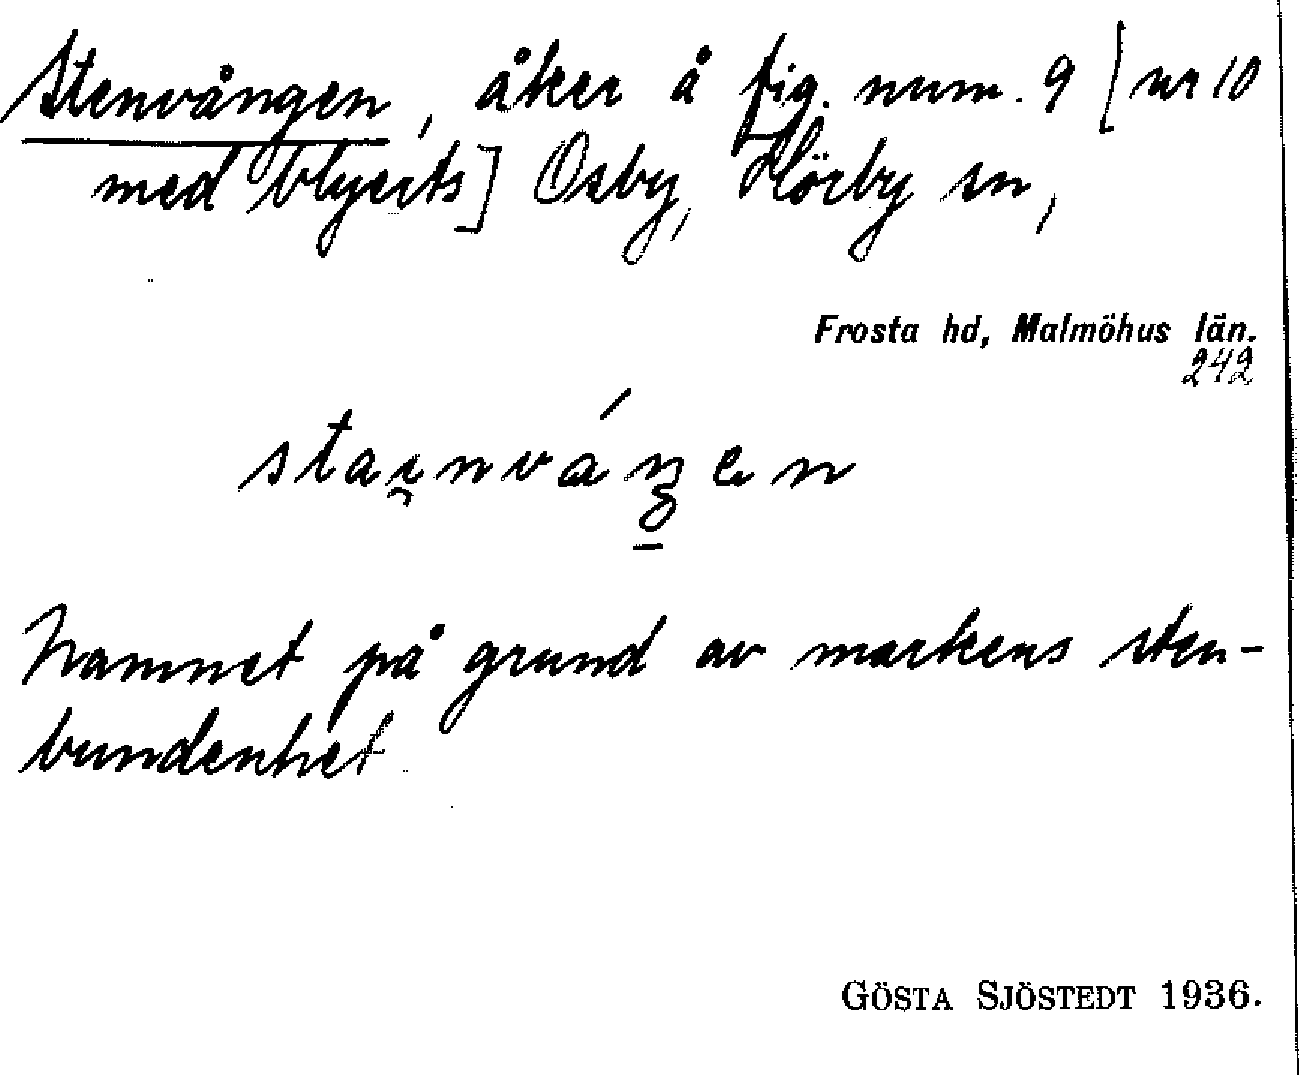 Stenvången, åker å fig. num. 9 [nr 10
med blyerts] Osby, Hörby sn,
Frosta hd, Malmöhus län.
242
stai̯nváŋ̲en
Namnet på grund av markens sten-
bundenhet.
GÖSTA SJÖSTEDT 1936.